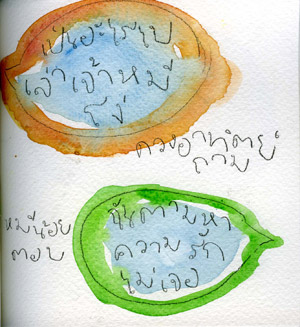 เป็นอะไรไป
เล่าเจ้าหมี
โง่
ดวงอาทิตย์
ถาม
หมีน้อย
ตอบ
ฉันตามหา
ความรัก
ไม่เจอ